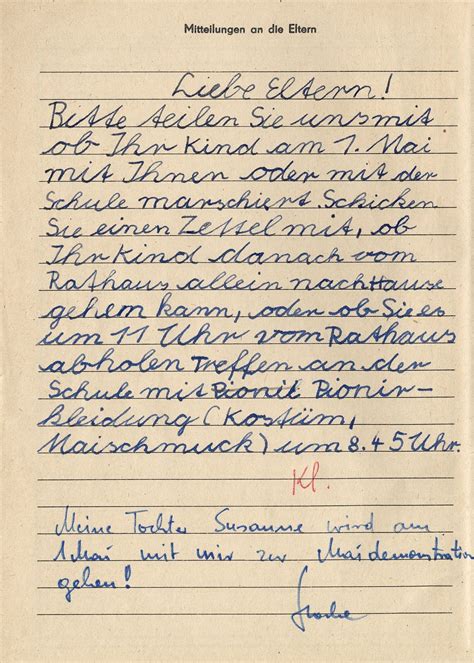 Mitteilungen an die Eltern
Liebe Eltern!
Bitte teilen Sie uns mit
ob Ihr Kind am 1. Mai
mit Ihnen oder mit der
Schule marschiert. Schicken
Sie einen Zettel mit, ob
Ihr Kind danach vom
Rathaus allein nach Hause
gehem kann, oder ob Sie es
um 11 Uhr vom Rathaus
abholen Treffen an der
Schule mit Pionit Pionir-
kleidung (Kostüm,
Maischmuck) um 8.45 Uhr.
Kl.
Meine Tochter Susanne wird am
1 Mai mit mir zur Maidemonstration
gehen!